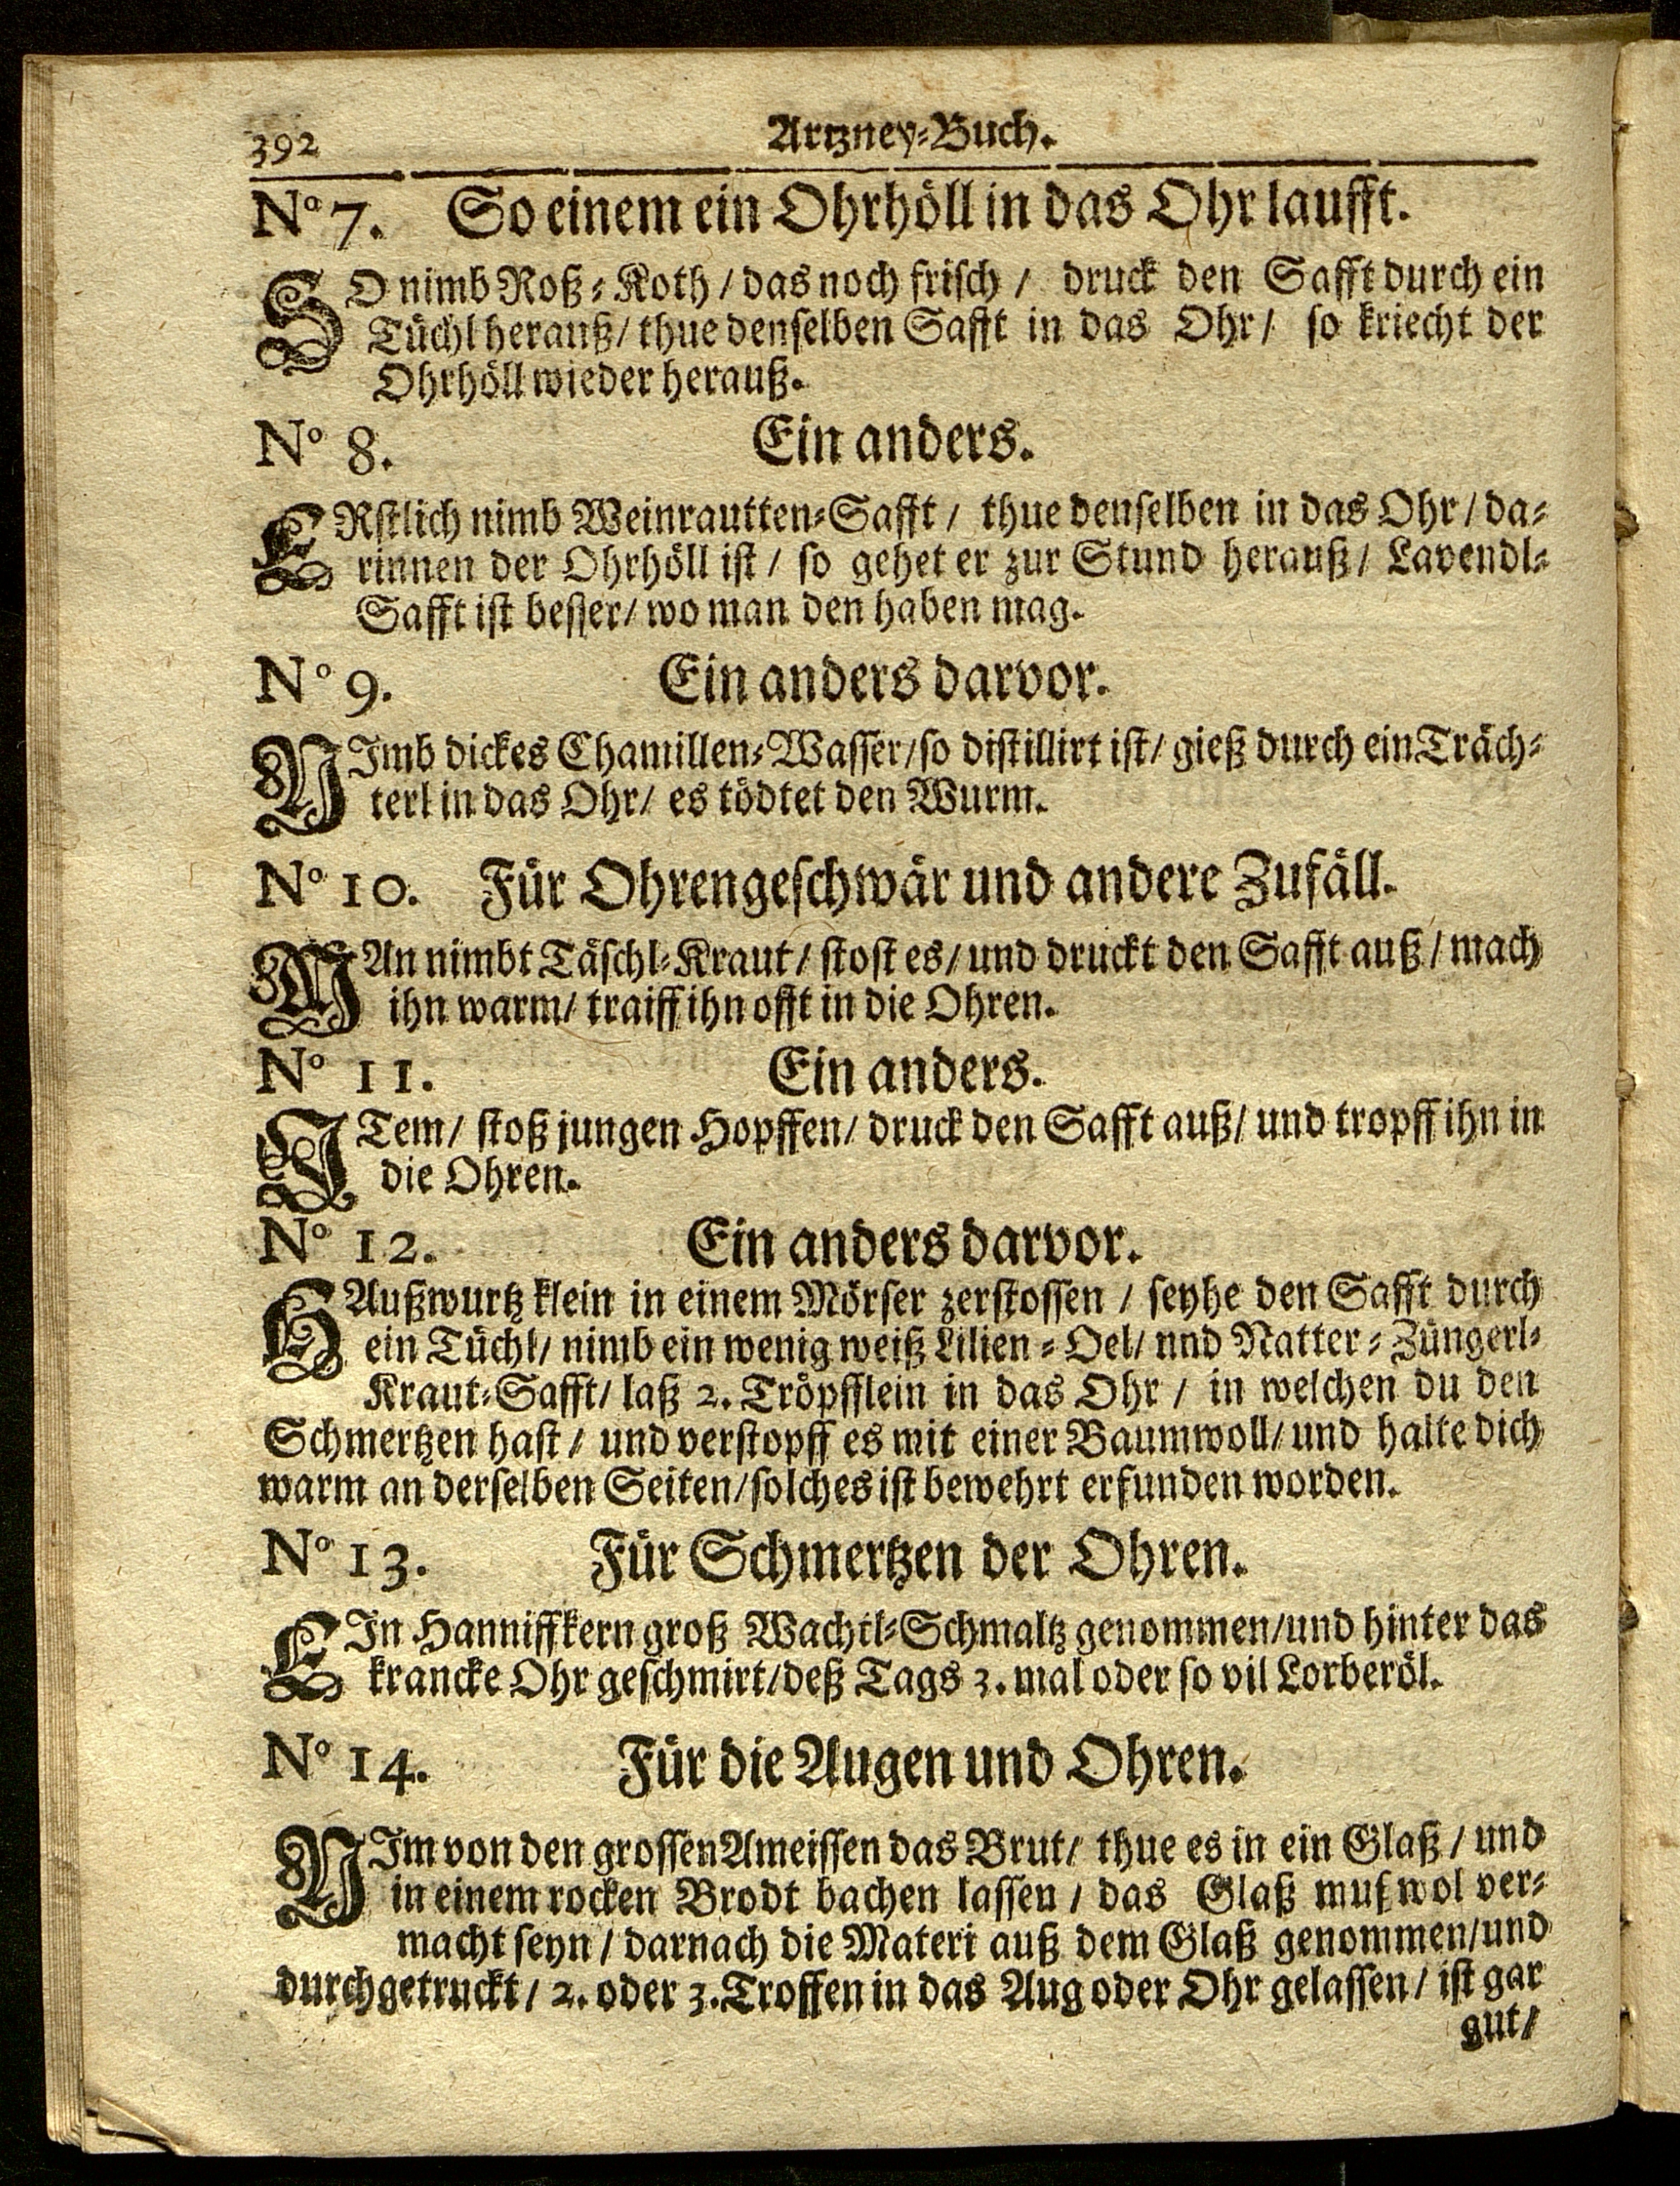 392 Artzney-Buch.
No 7. So einem ein Ohrhöll in das Ohr laufft.
SO nimb Roß-Koth / das noch frisch / druck den Safft durch ein
Tüchl herauß / thue denselben Safft in das Ohr / so kriecht der
Ohrhöll wieder herauß.
No 8. Ein anders.
ERstlich nimb Weinrautten-Safft / thue denselben in das Ohr / da-
rinnen der Ohrhöll ist / so gehet er zur Stund herauß / Lavendl-
Safft ist besser / wo man den haben mag.
No 9. Ein anders darvor.
NImb dickes Chamillen-Wasser / so distillirt ist / gieß durch ein Träch-
terl in das Ohr / es tödtet den Wurm.
No 10. Für Ohrengeschwär und andere Zufäll.
MAn nimbt Täschl-Kraut / stost es / und druckt den Safft auß / mach
ihn warm / traiff ihn offt in die Ohren.
No 11. Ein anders.
ITem / stoß jungen Hopffen / druck den Safft auß / und tropff ihn in
die Ohren.
No 12. Ein anders darvor.
HAußwurtz klein in einem Mörser zerstossen / seyhe den Safft durch
ein Tüchl / nimb ein wenig weiß Lilien-Oel / nnd Natter-Züngerl-
Kraut-Safft / laß 2. Tröpfflein in das Ohr / in welchen du den
Schmertzen hast / und verstopff es mit einer Baumwoll / und halte dich
warm an derselben Seiten / solches ist bewehrt erfunden worden.
No 13. Für Schmertzen der Ohren.
EIn Hanniffkern groß Wachtl-Schmaltz genommen / und hinter das
krancke Ohr geschmirt / deß Tags 3. mal oder so vil Lorberöl.
No 14. Für die Augen und Ohren.
NIm von den grossen Ameissen das Brut / thue es in ein Glaß / und
in einem rocken Brodt bachen lassen / das Glaß muß wol ver-
macht seyn / darnach die Materi auß dem Glaß genommen / und
durchgetruckt / 2. oder 3. Troffen in das Aug oder Ohr gelassen / ist gar
gut /